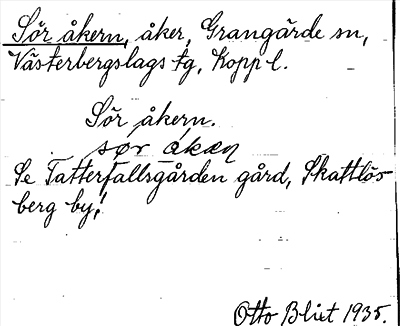 Sör åkern, åker, Grangärde sn,
Västerbergslags tg, Kopp l.
Sör åkern.
sør åkæṇ
Se Tatterfallsgården gård, Skattlös-
berg by!
Otto Blixt 1935.